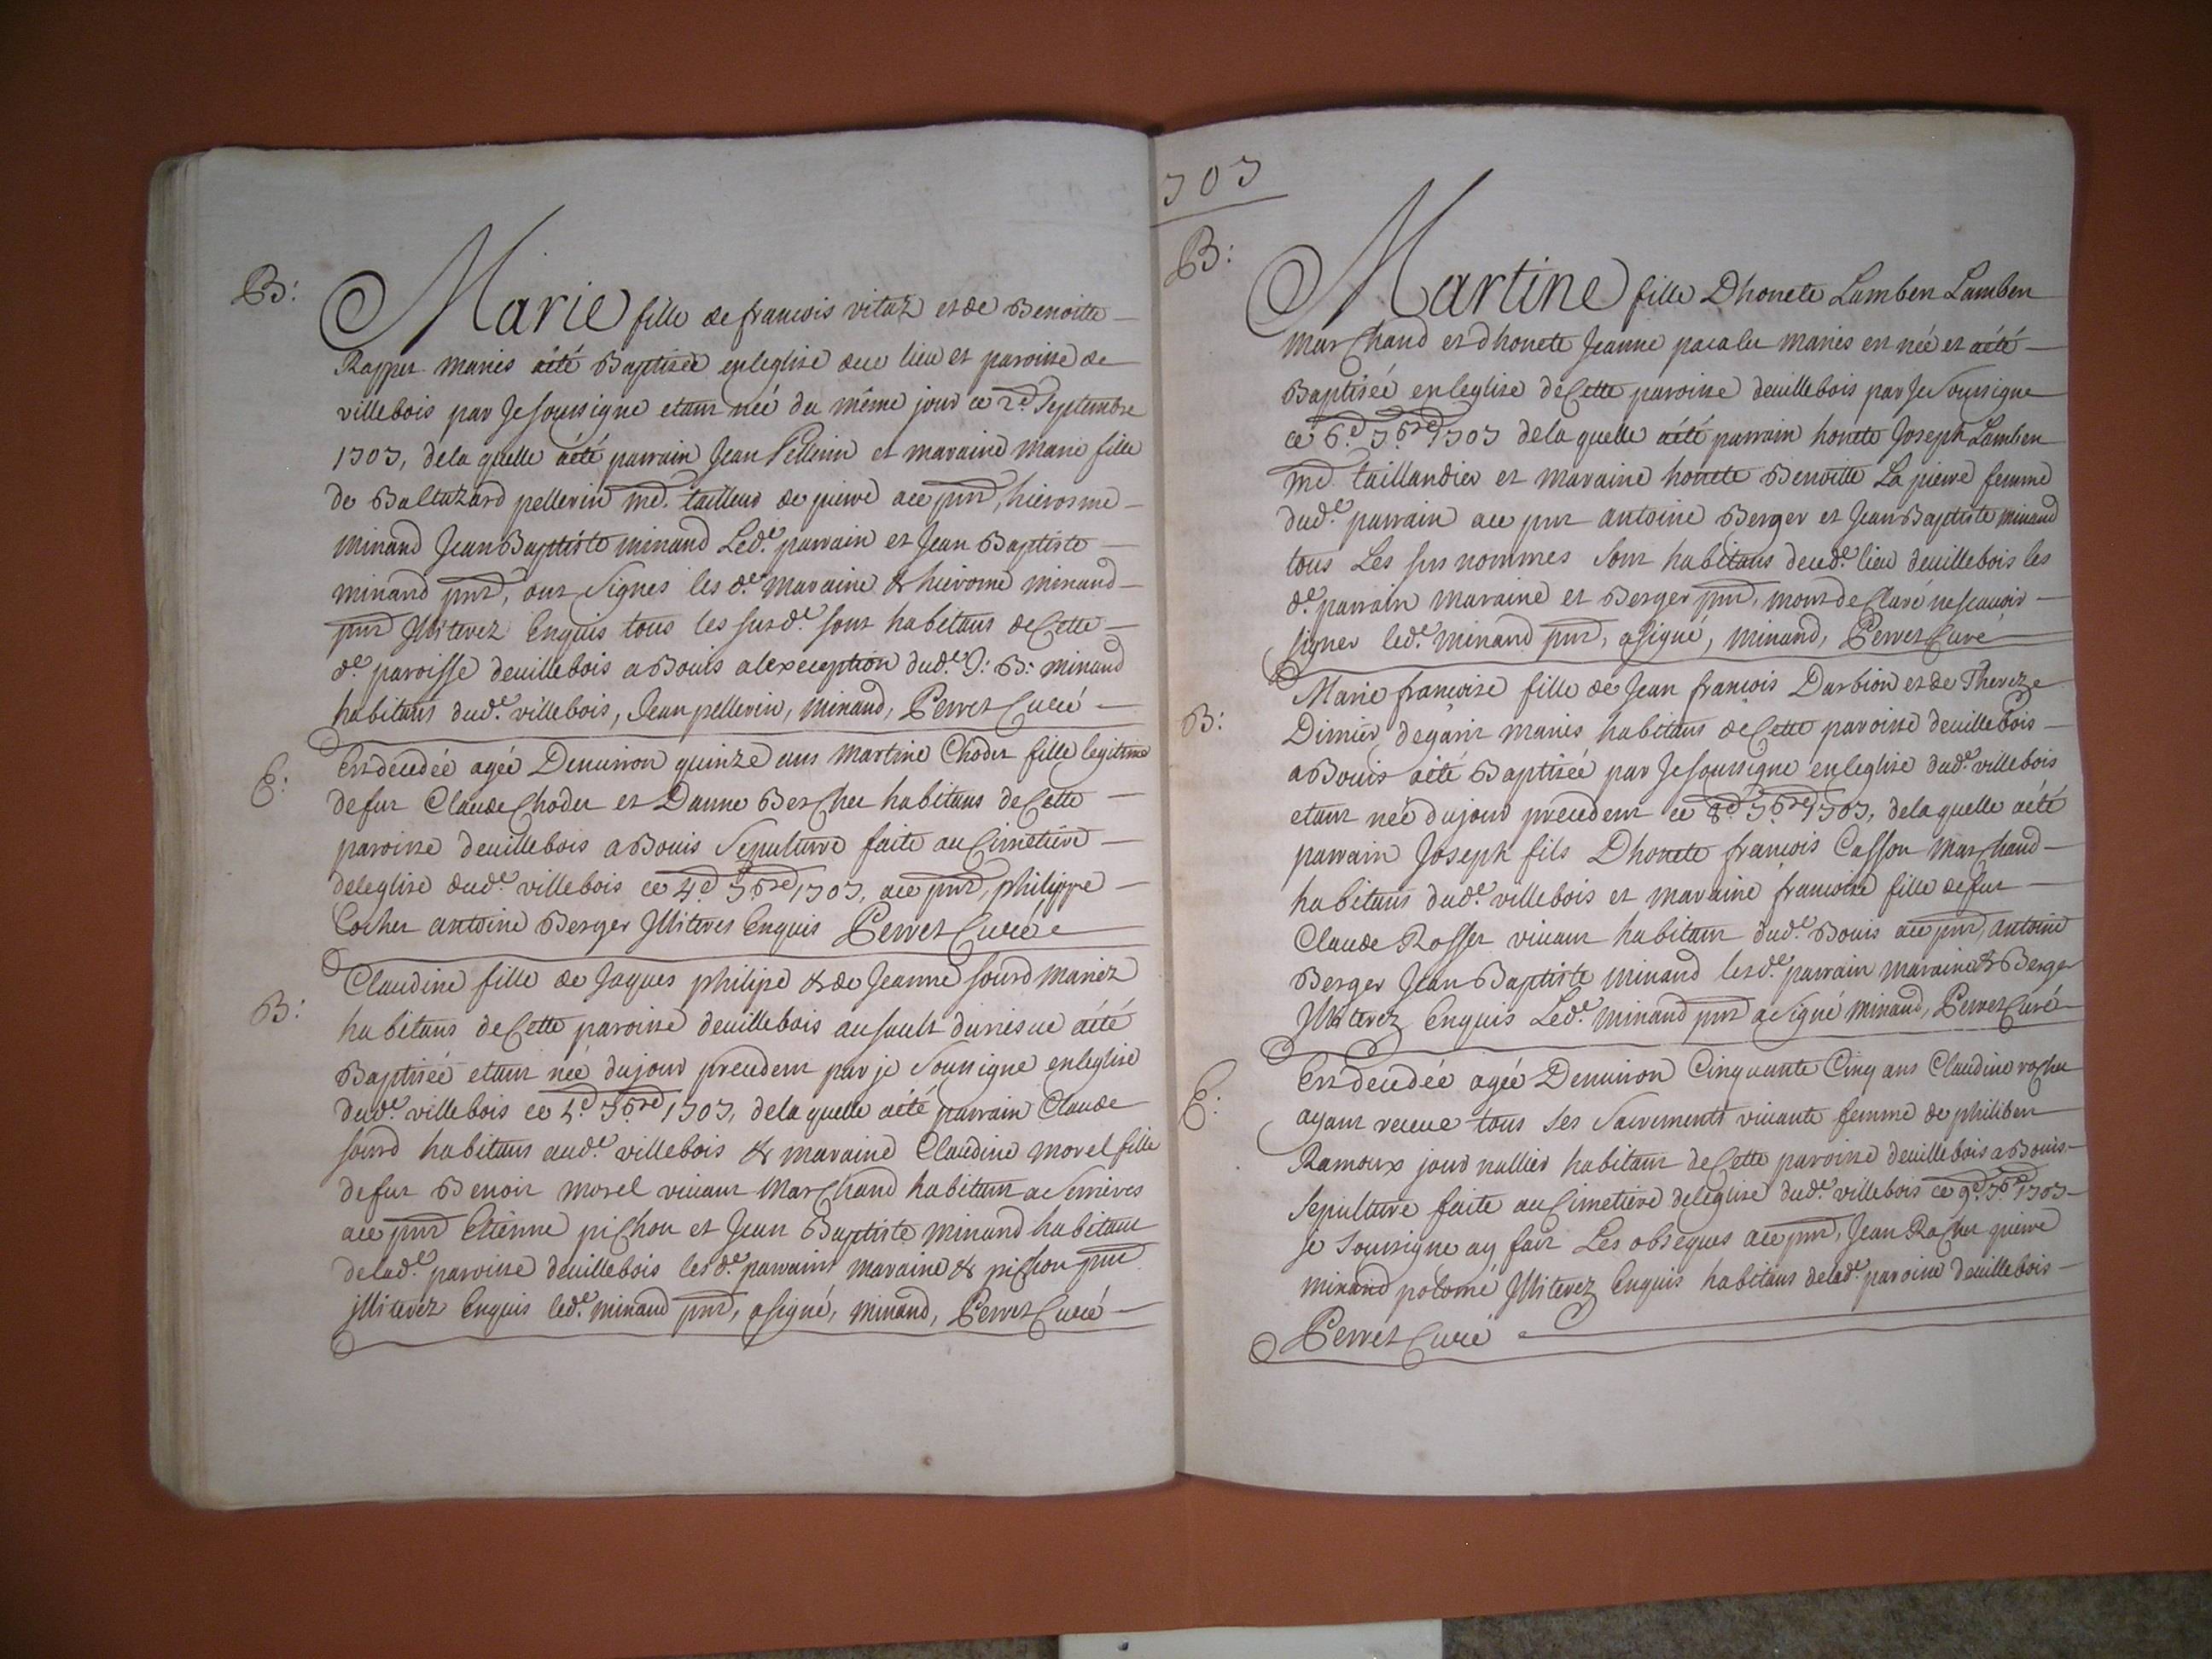 B:
Marie fille de francois vitaz et de Benoitte
Rappet mariés aété Baptisée enleglise dece lieu et paroisse de
villebois par Je soussigne etant née du même jour ce 2.d Septembre
1707, dela quelle aété parrain Jean Pellerin et maraine Marie fille
de Baltazard pellerin md. tailleur de pierre ace pnt, hierosme
minand Jean Baptiste minand Led.e parrain et Jean Baptiste
minand pnt, ont signes les d.e maraine & hierome minand
pnt Illiterez Enquis tous les susd.e sont habitans de Cette
d.e paroisse deuillebois a Bouis alexeception dud.e J: B: minand
habitans dud.e villebois, Jean pellerin, minand, Perret Curé
E:
Est decedée agée Denuiron quinze ans Martine Chodet fille legitime
defut Claude Chodet et Danne Bercher habitans de Cette
paroisse deuillebois a Bouis Sepulture faite au Cimetiere
deleglise dud.e villebois ce 4.e 7bre 1707, ace pnt, philippe
Cocher antoine Berger Illiteres Enquis Perret Curé
B:
Claudine fille de Jaques philipe & de Jeanne sourd mariez
habitans de Cette paroisse deuillebois au sault aété
Baptisée etant née dujour precedent par je soussigne enleglise
dud.e villebois ce 7bre 1707, dela quelle aété parrain Claude
sourd habitans aud.e villebois & maraine Claudine morel fille
defut Benoit morel viuant Marchand habitant a Serrieres
ace pnt Etienne pichon et Jean Baptiste minand habitant
delad.e paroisse deuillebois les d.e parrain maraine & pichon pnt
illiterez Enquis led.e minand pnt, a signé, minand, Perret Curé
707
B:
Martine fille Dhonete Lambert Lambert
marchand et dhonete Jeanne mariés est née et aété
Baptisée enleglise de Cette paroisse deuillebois par Je soussigne
ce 6.e 7bre 1707 dela quelle aété parrain honete Joseph Lambert
md taillandier et maraine honete Benoitte La pierre femme
dud.e parrain ace pnt antoine Berger et Jean Baptiste minand
tous Les sus nommes sont habitans decd.e lieu deuillebois les
d.e parrain maraine et Berger pnt, mont de Claré nescauoir
signer led.e minand pnt, a signé, minand, Perret Curé
B:
Marie francoise fille de Jean francois Darbion et de Thereze
Dimier mariés habitans de Cette paroisse deuillebois
a Bouis aété Baptisée par Je soussigne enleglise dud.e villebois
etant née dujour precedent ce 8.e 7bre 1707, dela quelle aété
parrain Joseph fils Dhonete francois Casson Marchand
habitans dud.e villebois et maraine francoise fille defut
Claude Rosset viuant habitant dud.e Bouis ace pnt, antoine
Berger Jean Baptiste minand lesd.e parrain maraine & Berger
Illiterez Enquis Led.e minand pnt a signé minand, Perret Curé
E:
Est decedée agée Denuiron Cinquante Cinq ans Claudine
ayant receue tous ses sacrements viuante femme de philibert
Ramoux jour nallier habitant de Cette paroisse deuillebois a Bouis
Sepulture faite au Cimetiere deleglise dud.e villebois ce 9.e 7bre 1707
Je soussigne ay fait Les obseques ace pnt, Jean pierre
minand polomé Illiterez Enquis habitans delad.e paroisse deuillebois
Perret Curé